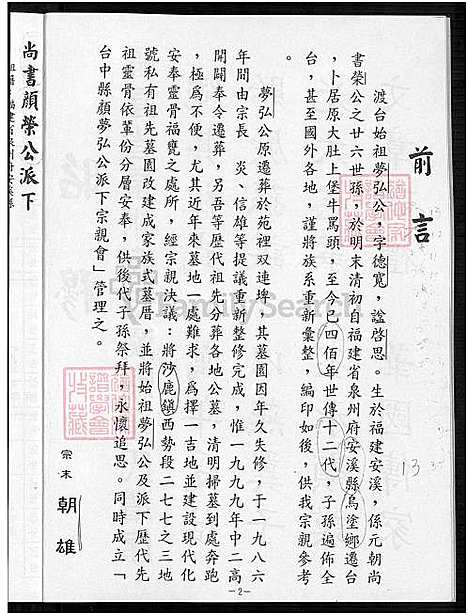 前言
渡台始祖夢弘公，字德寬，諡啓思。生於福建安溪，係元朝尚
書榮公之廿六世孫，於明末清初自福建省泉州府安溪縣烏塗鄉遷台
，卜居原大肚上堡牛罵頭，至今已四佰年世傳十二代，子孫遍佈全
台，甚至國外各地，謹將族系重新彙整，編印如後，供我宗親參考
。
夢弘公原遷葬於苑裡双連埤，其墓園因年久失修，于一九八六
年間由宗長　炎、信雄等提議重新整修完成，惟一九九九年中二高
開闢奉令遷葬，另吾等歷代祖先分葬各地公墓，清明掃墓到處奔跑
，極爲不便，尤其近年來墓地一處難求，爲擇一吉地並建設現代化
安奉靈骨福甕之處所，經宗親決議：將沙鹿鎮西勢段二七七之三地
號私有祖先墓園改建成家族式墓厝，並將始祖夢弘公及派下歷代先
祖靈骨依輩份分層安奉，供後代子孫祭拜，永懷追思。同時成立「
台中縣顏夢弘公派下宗親會」管理之。
宗末　朝雄
13
-2-
尚書顏榮公派下
FamilySearch